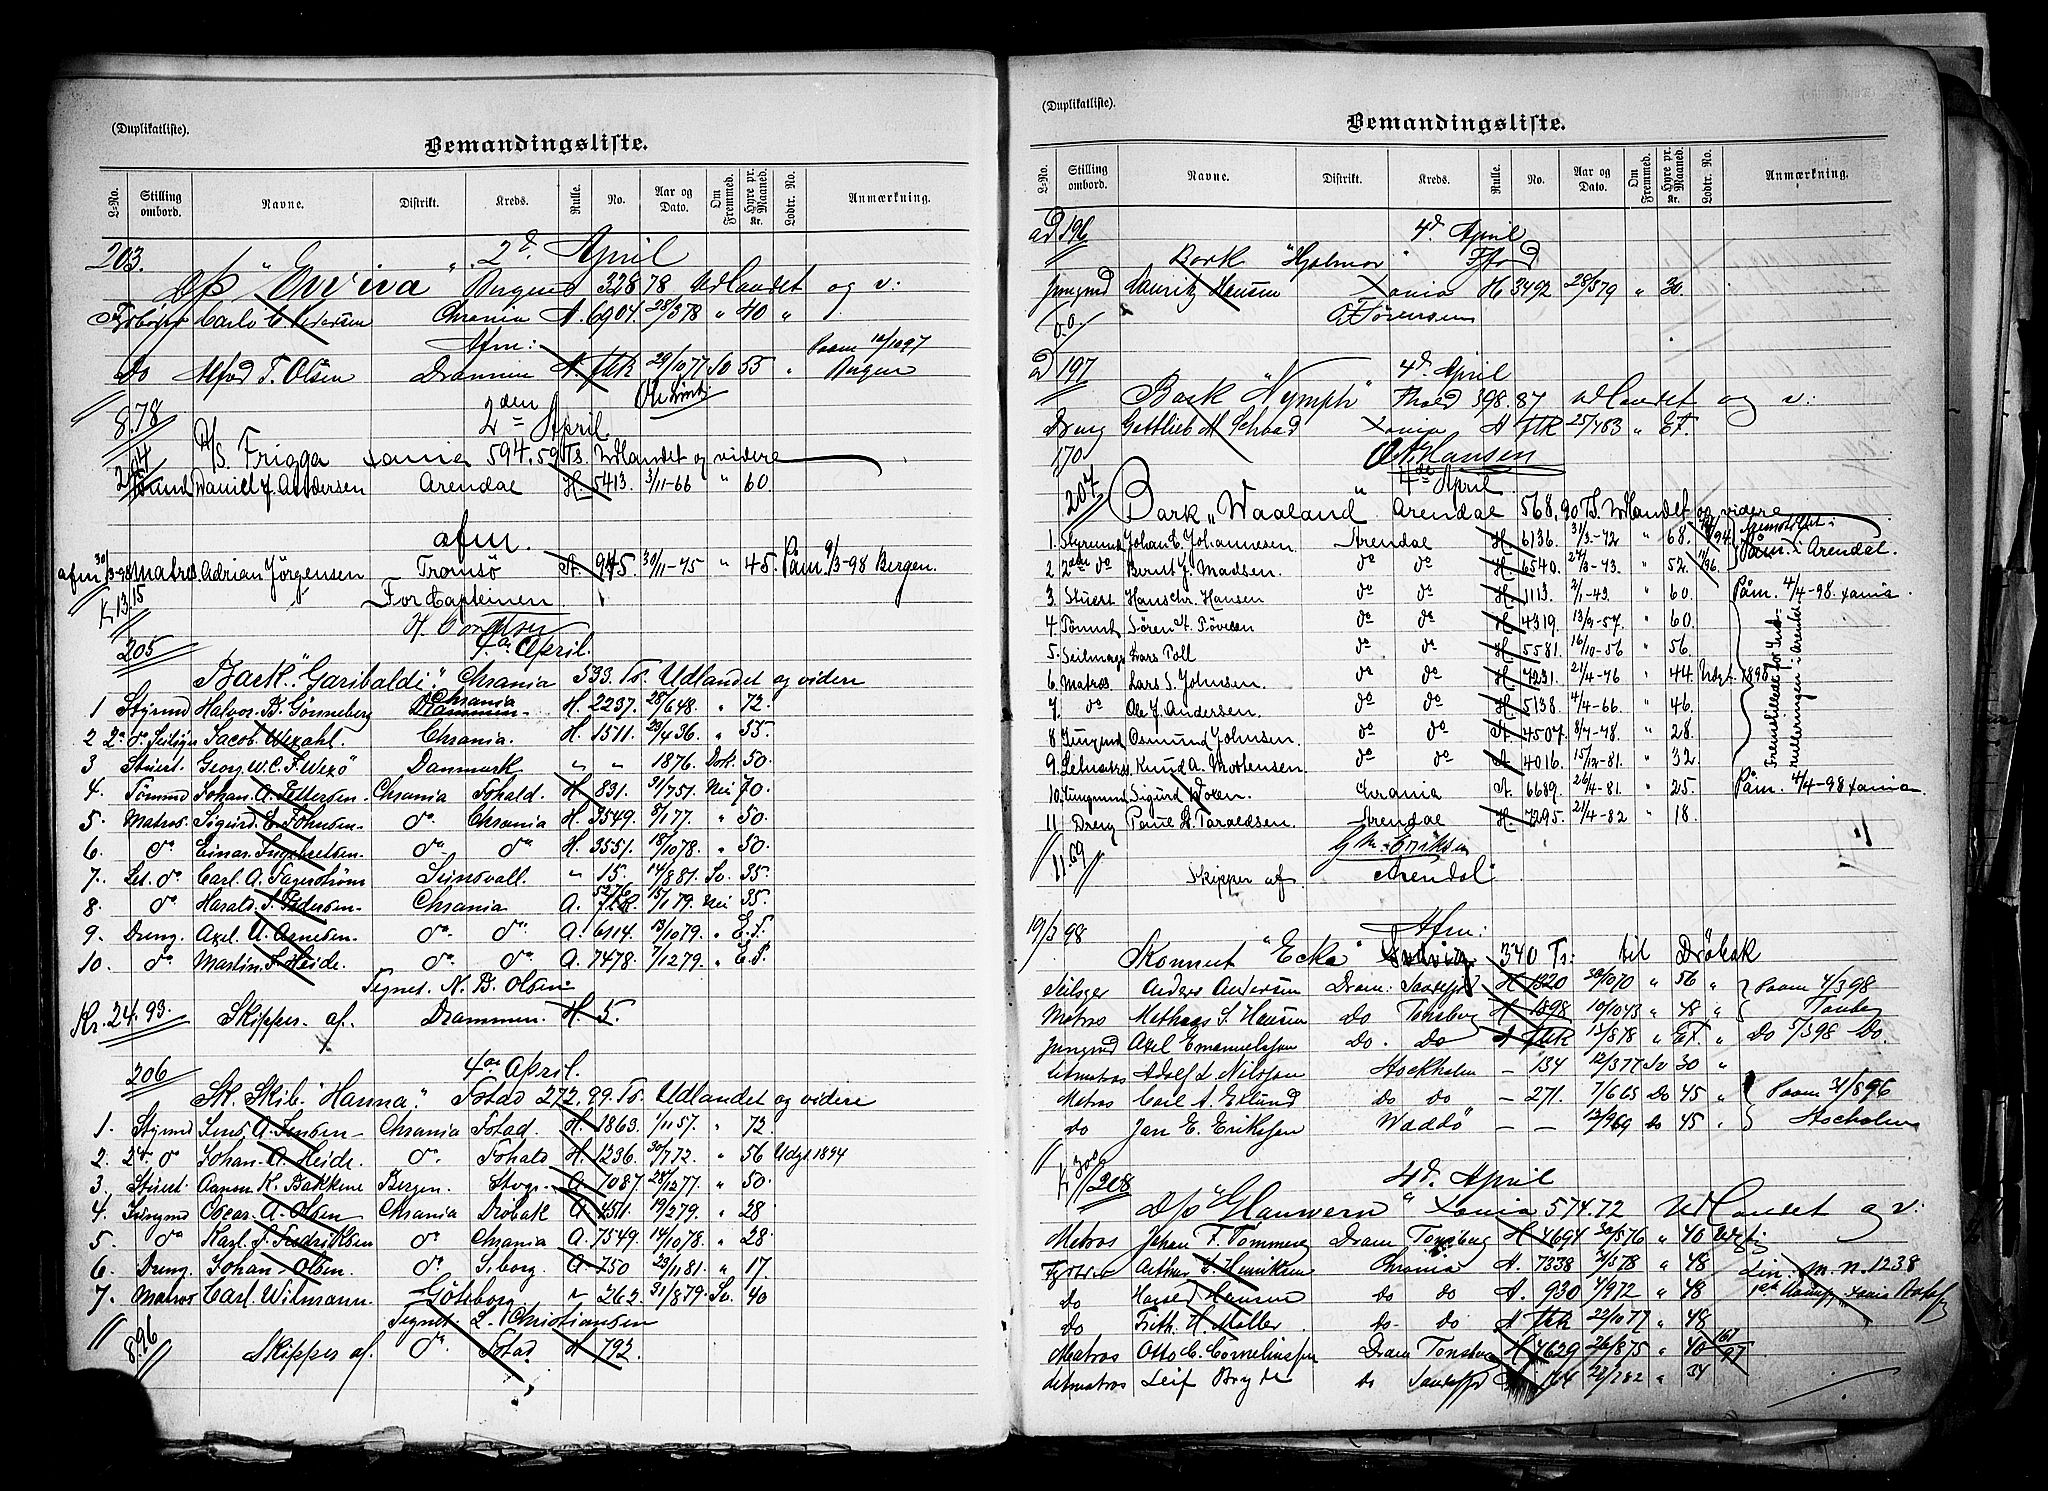 (Duplikatliste).
Bemandingsliste.
L-No. Stilling ombord. Navne. Distrikt. Kreds. Rulle. No. Aar og Dato. Om Fremmed. Hyre pr. Maaned. Kr. Lodtr. No. Anmærkning.
203. 2d April
D/S " " 328 78 Udlandet og v:
Carlo C. Pedersen Chrania A. 6901 28/3 78 " 40 "
Afm: Paam 12/10 97
Do Alfred T. Olsen Drammen A. ftR 29/10 77 Sv 55 " Bergen
8.78 2den April
204 D/S. Frigga Xania 594,59 Ts. Udlandet og videre
Daniel J. Andersen Arendal H. 5413. 3/11-66 " 60.
afm.
afm 30/3-98 Matros Adrian Jörgensen Tromsö A. 945. 30/11-75 " 45. Påm. 9/3-98 Bergen.
K 13.15 For Capteinen
205 4de April.
Bark "Garibaldi" Chrania 533. Ts. Udlandet og videre
1 Styrmd Halvor. B. Gönneberg Chrania Drammen. H. 2237. 28/6 48. " 72.
2 2n do Seilm Jacob. Wexahl. Chrania. H. 1511. 23/4 36. " 55.
3 Stuert. Georg. W. C. F. Wexö Danmark " " 1876. Dsk. 50.
4. Tömmd Johan. A. Pettersen. Chrania Fshald. H. 831. 31/7 51. Nei 70.
5. Matros. Sigurd. E. Johnsen. do. Chrania H. 3549. 8/1 77. " 50.
6. do Einar. Ingebretsen. do. do H. 3551. 18/10 78. " 50.
7. Let. do. Carl. A. Fagerström Sunsvall. " 15. 14/8 81. Sv. 35.
8. do Harald. S. Pedersen. Chrania. A. 5276 ftR. 15/1 79. Nei 35.
9. Dreng. Axel. U. Agnesen. do. do. A. 6114. 13/10 79. " E.F.
10. do Martin. S. Heide. do. do. A. 7478. 7/12 79. " E.F.
Tegnet. N. B. Olsen.
Kr. 24.93. Skipper. af. Drammen. H. 5.
206 4de April.
Sk. Skib. "Hanna." Fstad 272.99. Ts. Udlandet og videre
1. Styrmd Jens. A. Jensen Chrania Fstad. H. 1863. 1/11 57. " 72.
2. 2n do Johan. A. Heide. do. Fshald H. 1236. 30/7 72. " 56 Udgt. 1894
3. Stuert. Aanen K. Bakkene Bergen. Stvgr. A. 7087. 28/12 77. " 50.
4. Jungmd Oscar. A. Olsen Chrania Dröbak A. 4511. 19/2 79. " 28
5. do Karl. S. Fredriksen do Chrania A. 7549. 14/10 78. " 28.
6. Dreng. Johan. Olsen. do. S.borg. A. 750 23/11 81. " 17.
7. Matros Carl. Wilmann. Göteborg " 262. 31/8 79. Sv. 40
Tegnet. L. Christiansen
8.96 Skipper af. do. Fstad. H 792.
(Duplikatliste).
Bemandingsliste.
L-No. Stilling ombord. Navne. Distrikt. Kreds. Rulle. No. Aar og Dato. Om Fremmed. Hyre pr. Maaned. Kr. Lodtr. No. Anmærkning.
ad 196 4d April
Bark "Hjalmar" Fstad
Jungmd Lauritz Hansen Xania H 3492 28/5 79 " 30.
O Sörensen
ad 197 4d April
Bark "Nymph" Fhald 398.87 Udlandet og v:
Dreng Gottlieb M Schad Xania A ftR 25/4 83 " EF.
170 O A Hansen
207 4de April
Bark "Waaland" Arendal 568,90 Ts. Udlandet og videre
1. Styrmd Johan E. Johannesen. Arendal H. 6136. 31/3-72 " 68.
2 2den do Bernt J. Madsen. do do H. 6540. 24/3-73. " 52.
3. Stuert Hans Chr. Hansen do do H. 1113. 2/1-43. " 60. Påm. 4/4-98. Xania.
4. Tömmd Sören A. Tövesen do do H. 4319. 13/9-57. " 60.
5. Seilmager Lars Poll do do H. 5581. 16/10-56 " 56.
6. Matros Lars S. Johnsen. do do H. 7231. 21/4-76 " 44. Udgt. 1898
7. do Ole J. Andersen. do do H. 5138 4/4-66 " 46.
8. Jungmd Osmund Johnsen. do do A. 4507. 3/7-78. " 28.
9. Letmatros Knud A. Mortensen. do do A. 4016. 15/12-81. " 32
10. Jungmand Sigurd Dosen. Chrania A. 6689. 26/4-81. " 25. Påm. 4/4-98 Xania.
11 Dreng Paul H. Taraldsen. Arendal H. 7295. 21/4-82 " 18.
Fremstillede for Ind-
rulleringen i Arendal
11.69 G M. Eriksen
Skipper af. Arendal
19/3 98 Afm:
Skonnert "Ecke" 340 Ts: til Dröbak
Seilsger Anders Andersen Dram: Sandefjd H 1320 30/10 70 " 56 " Paam 4/3 98
Matros Mathias S. Hansen Do Tönsberg H 1898 10/10 43 " 48 " Tönsberg
Jungmd Axel Emanuelssen Do. Do A ftR 13/8 78 " EF " Do 5/3 98 Do.
Letmatros Adolf L. Nilsson Stockholm — 134 12/3 77 Sv 30 "
Matros Carl A. Eklund do do — 271. 7/6 65 Do 45 " Paam 31/5 96
do Jan E. Eriksson Waddö — — 13/9 69 do 45 " Stocholm
208 4d. April
D/S "Hauwern" Xania 574.72 Udlandet og v:
Matros Johan F. Tommerg Dram Tonsberg H 4694 30/5 76 " 40
Fyrbr Arthur E. Henriksen Chrania A. 7338 31/5 78 " 48 Lin. M. N. 1238
Do Harald Hansen do do A. 930 4/9 72 " 48
Do Frith. H. Møller do do A ftR 22/10 77 " 48
Matros Otto C. Corneliussen Dram Tonsberg H 4629 26/8 75 " 40 167/97
Letmatros Leif Bryde do Sandefjd 164 22/2 82 " 34